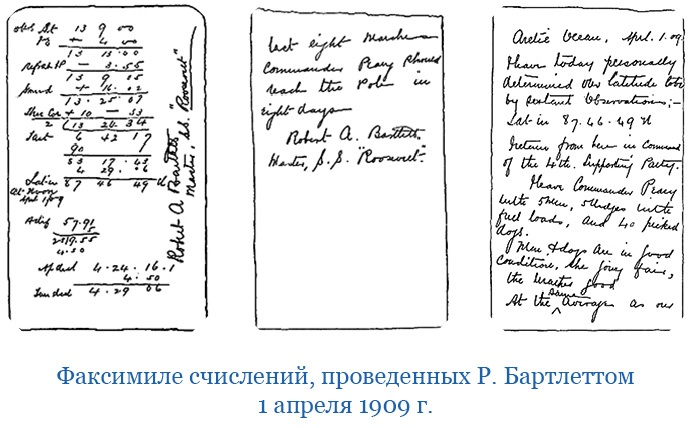 13 9 00
+ 4 00
13 13.00
— 3.55
13 9 05
+ 16.02
13.25.07
Cor + 10 — 33
2 13 24 34
6 42 17
90
83 17.43
4 29.06
Lat in 87 46 49 N
At Noon
April 1/09
57.91
4.50
Ap decl 4.24.16.1
4.50
decl 4.29 06
Robert A Bartlett
Master, S.S. "Roosevelt"
last eight Marches
Commander Peary should
reach the Pole in
eight days
Robert A. Bartlett
Master, S.S. "Roosevelt".
Arctic Ocean, Apl. 1.09.
I have today personally
determined our latitude
by sextant Observations;-
Lat in 87.46.49 N
I return from here in Command
of the 4th. Supporting Party.
I leave Commander Peary
with 5 men, 5 sledges with
full loads, and 40 picked
dogs.
Men & dogs are in good
condition. The going fair,
the weather good
At the same average as our
Факсимиле счислений, проведенных Р. Бартлеттом
1 апреля 1909 г.